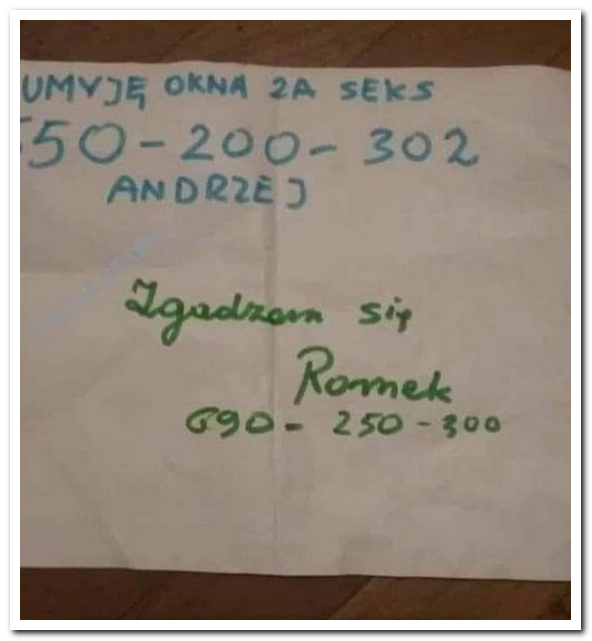 UMYJĘ OKNA ZA SEKS
550-200-302
ANDRZEJ
Zgadzam się
Romek
690-250-300